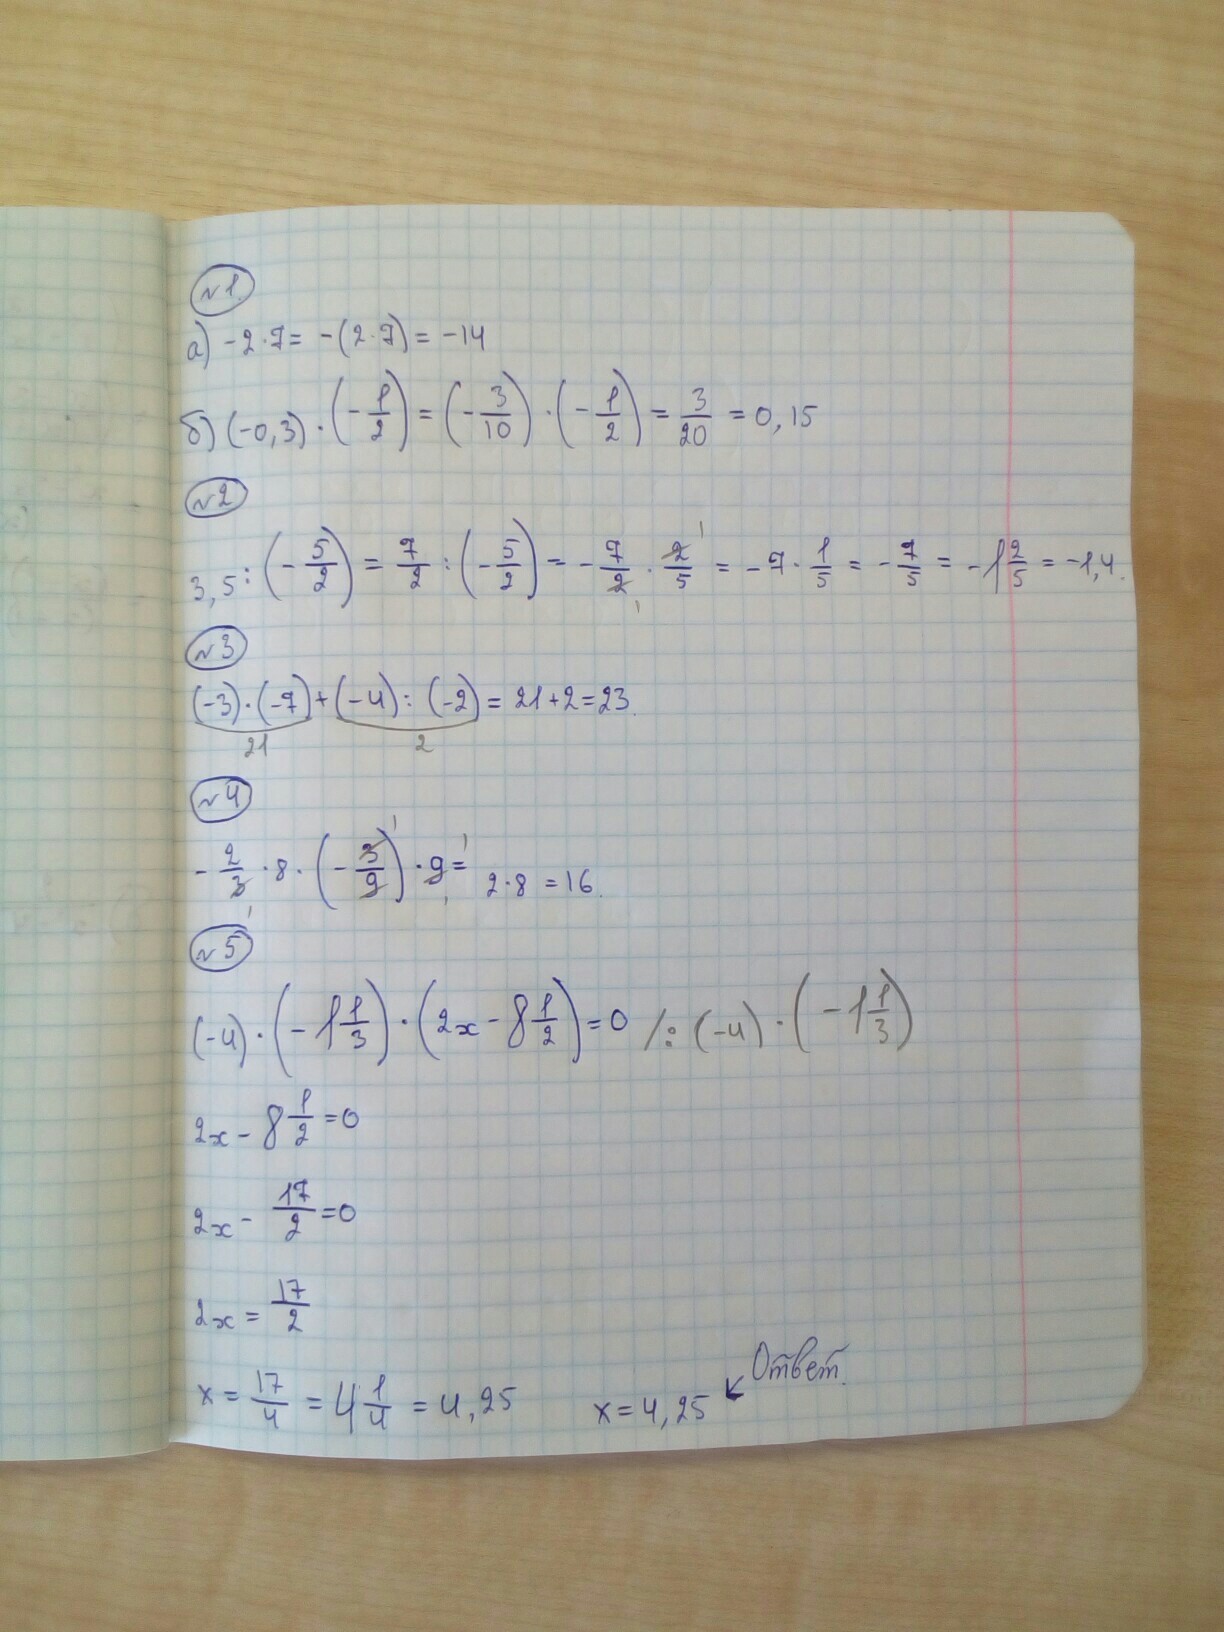 №1.
а) -2·7= -(2·7)= -14
б) (-0,3)·(-1/2)=(-3/10)·(-1/2)=3/20=0,15
№2
3,5:(-5/2)=7/2:(-5/2)=-7/2·2/5=-7·1/5=-7/5=-1 2/5=-1,4.
№3
(-3)·(-7)+(-4):(-2)=21+2=23.
21 2
№4
-2/3·8·(-3/9)·9= 2·8=16.
№5
(-4)·(-1 1/3)·(2x-8 1/2)=0 /:(-4)·(-1 1/3)
2x-8 1/2=0
2x-17/2=0
2x=17/2
x=17/4=4 1/4=4,25 x=4,25 ↙ Ответ.